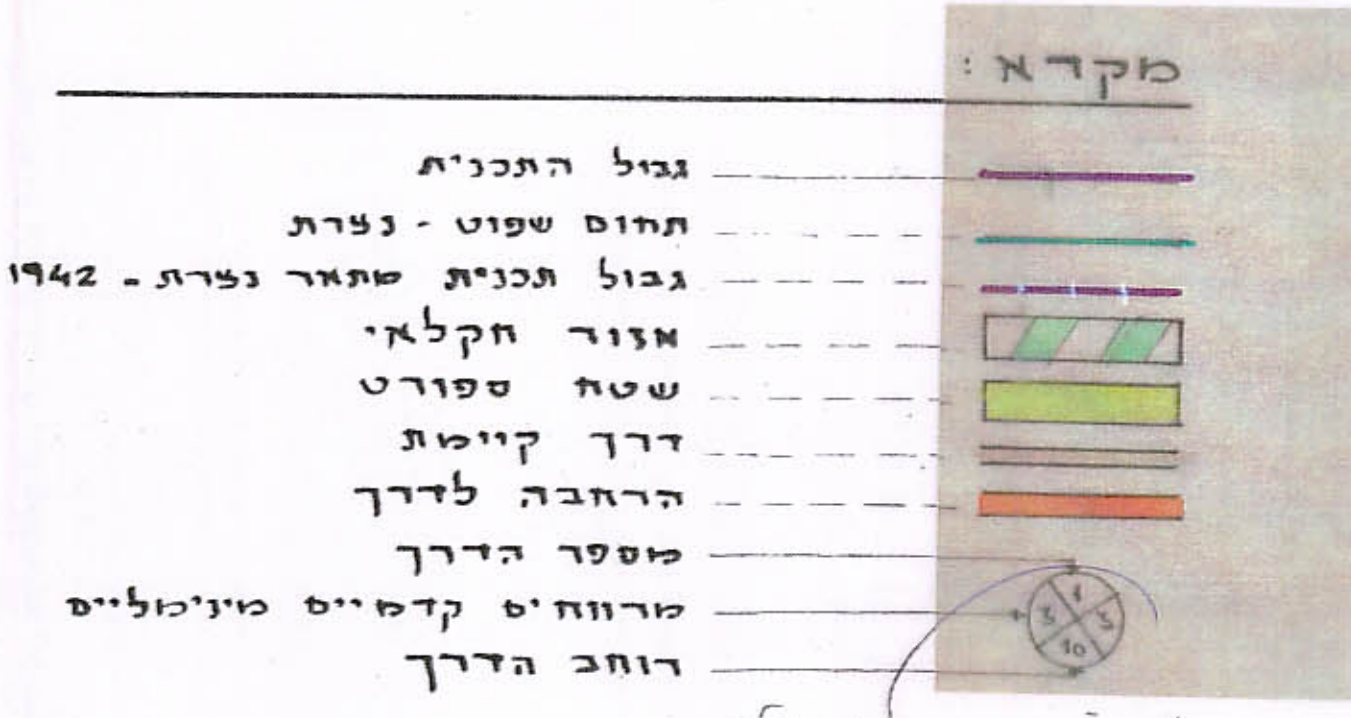 מקרא :
גבול התכנית
תחום שפוט - נצרת
גבול תכנית מתאר נצרת - 1942
אזור חקלאי
שטח ספורט
דרך קיימת
הרחבה לדרך
מספר הדרך
מרווחים קדמיים מינימליים
רוחב הדרך
1
3 3
10